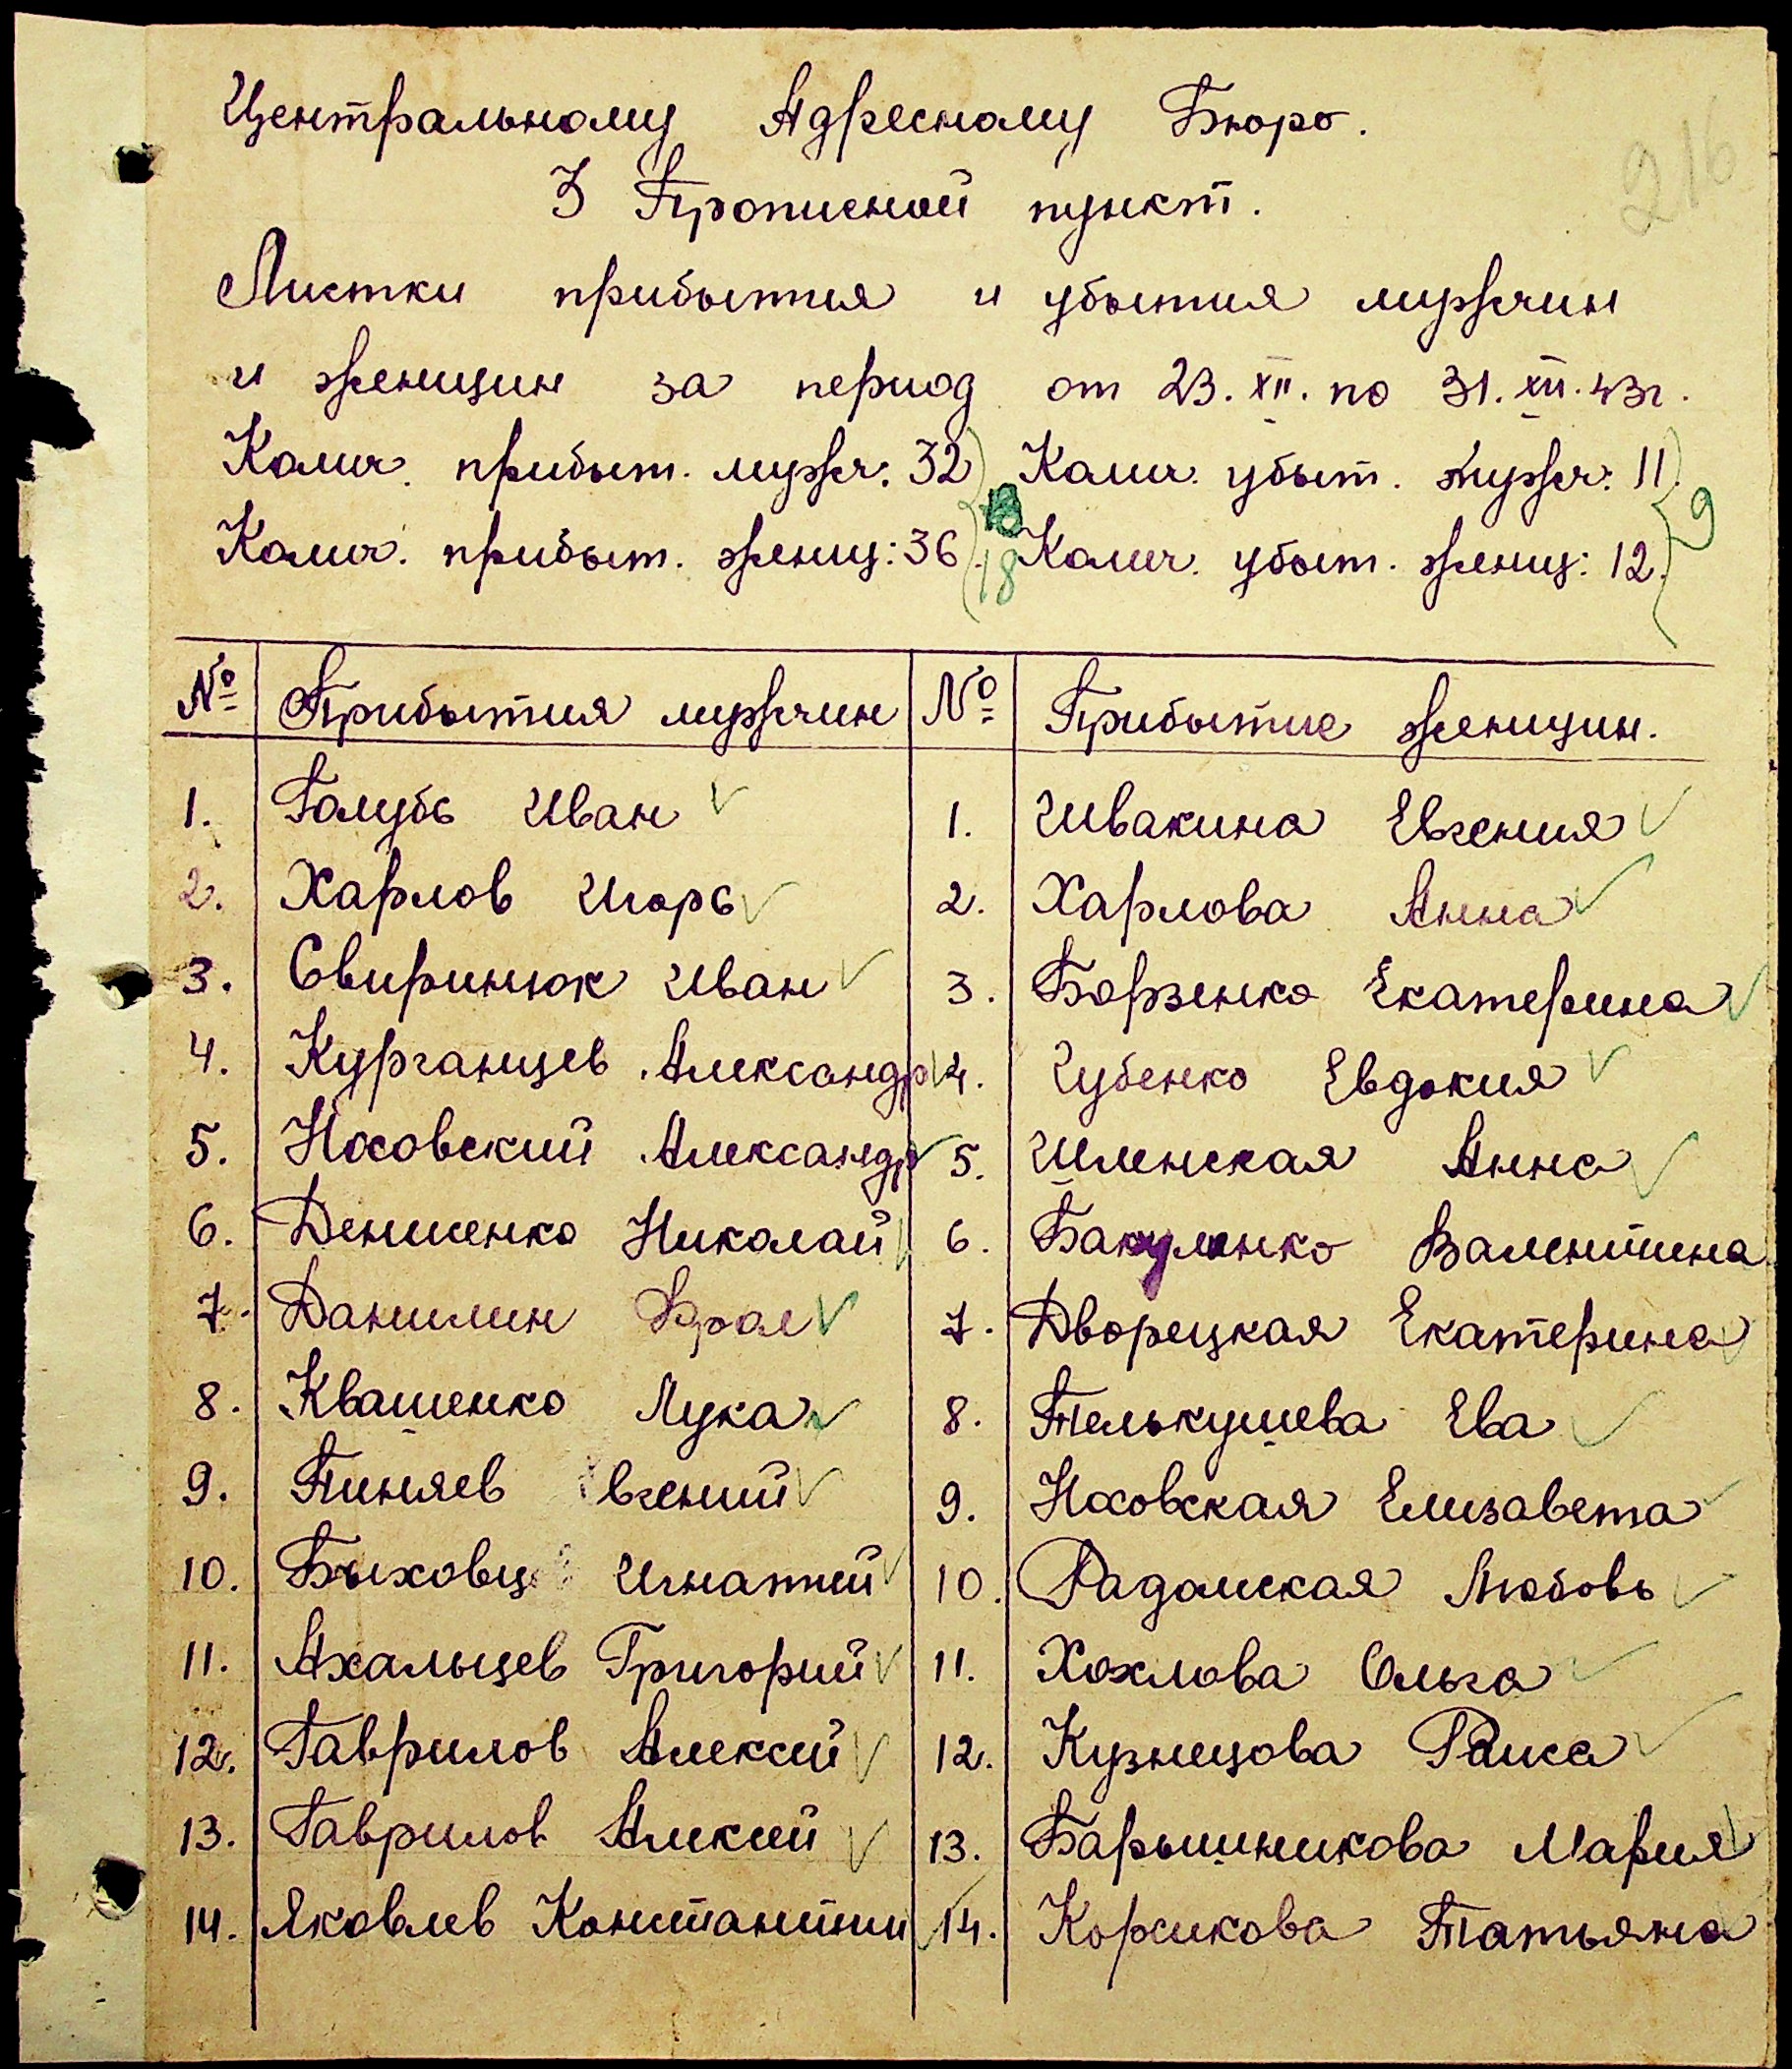 216
Центральному Адресному Бюро.
3 Прописной пункт.
Листки прибытия и убытия мужчин
и женщин за период от 23.XII. по 31.XII.43г.
Колич. прибыт. мужч: 32 Колич. убыт. мужч: 11. 9
Колич. прибыт. женщ: 36. 18 Колич. убыт. женщ: 12.
№ Прибытия мужчин № Прибытие женщин.
1. Голубь Иван 1. Ивакина Евгения
2. Харлов Игорь 2. Харлова Анна
3. Свиринюк Иван 3. Борзенко Екатерина
4. Курганцев Александр 4. Губенко Евдокия
5. Носовский Александр 5. Иленская Анна
6. Денисенко Николай 6. Бакуленко Валентина
7. Данилин Фрол 7. Дворецкая Екатерина
8. Квашенко Лука 8. Телькушева Ева
9. Пиняев вгений 9. Носовская Елизавета
10. Быховц Игнатий 10. Радомская Любовь
11. Ахальцев Григорий 11. Хохлова Ольга
12. Гаврилов Алексей 12. Кузнецова Раиса
13. Гаврилов Алексей 13. Барышникова Мария
14. Яковлев Константин 14. Корсикова Татьяна